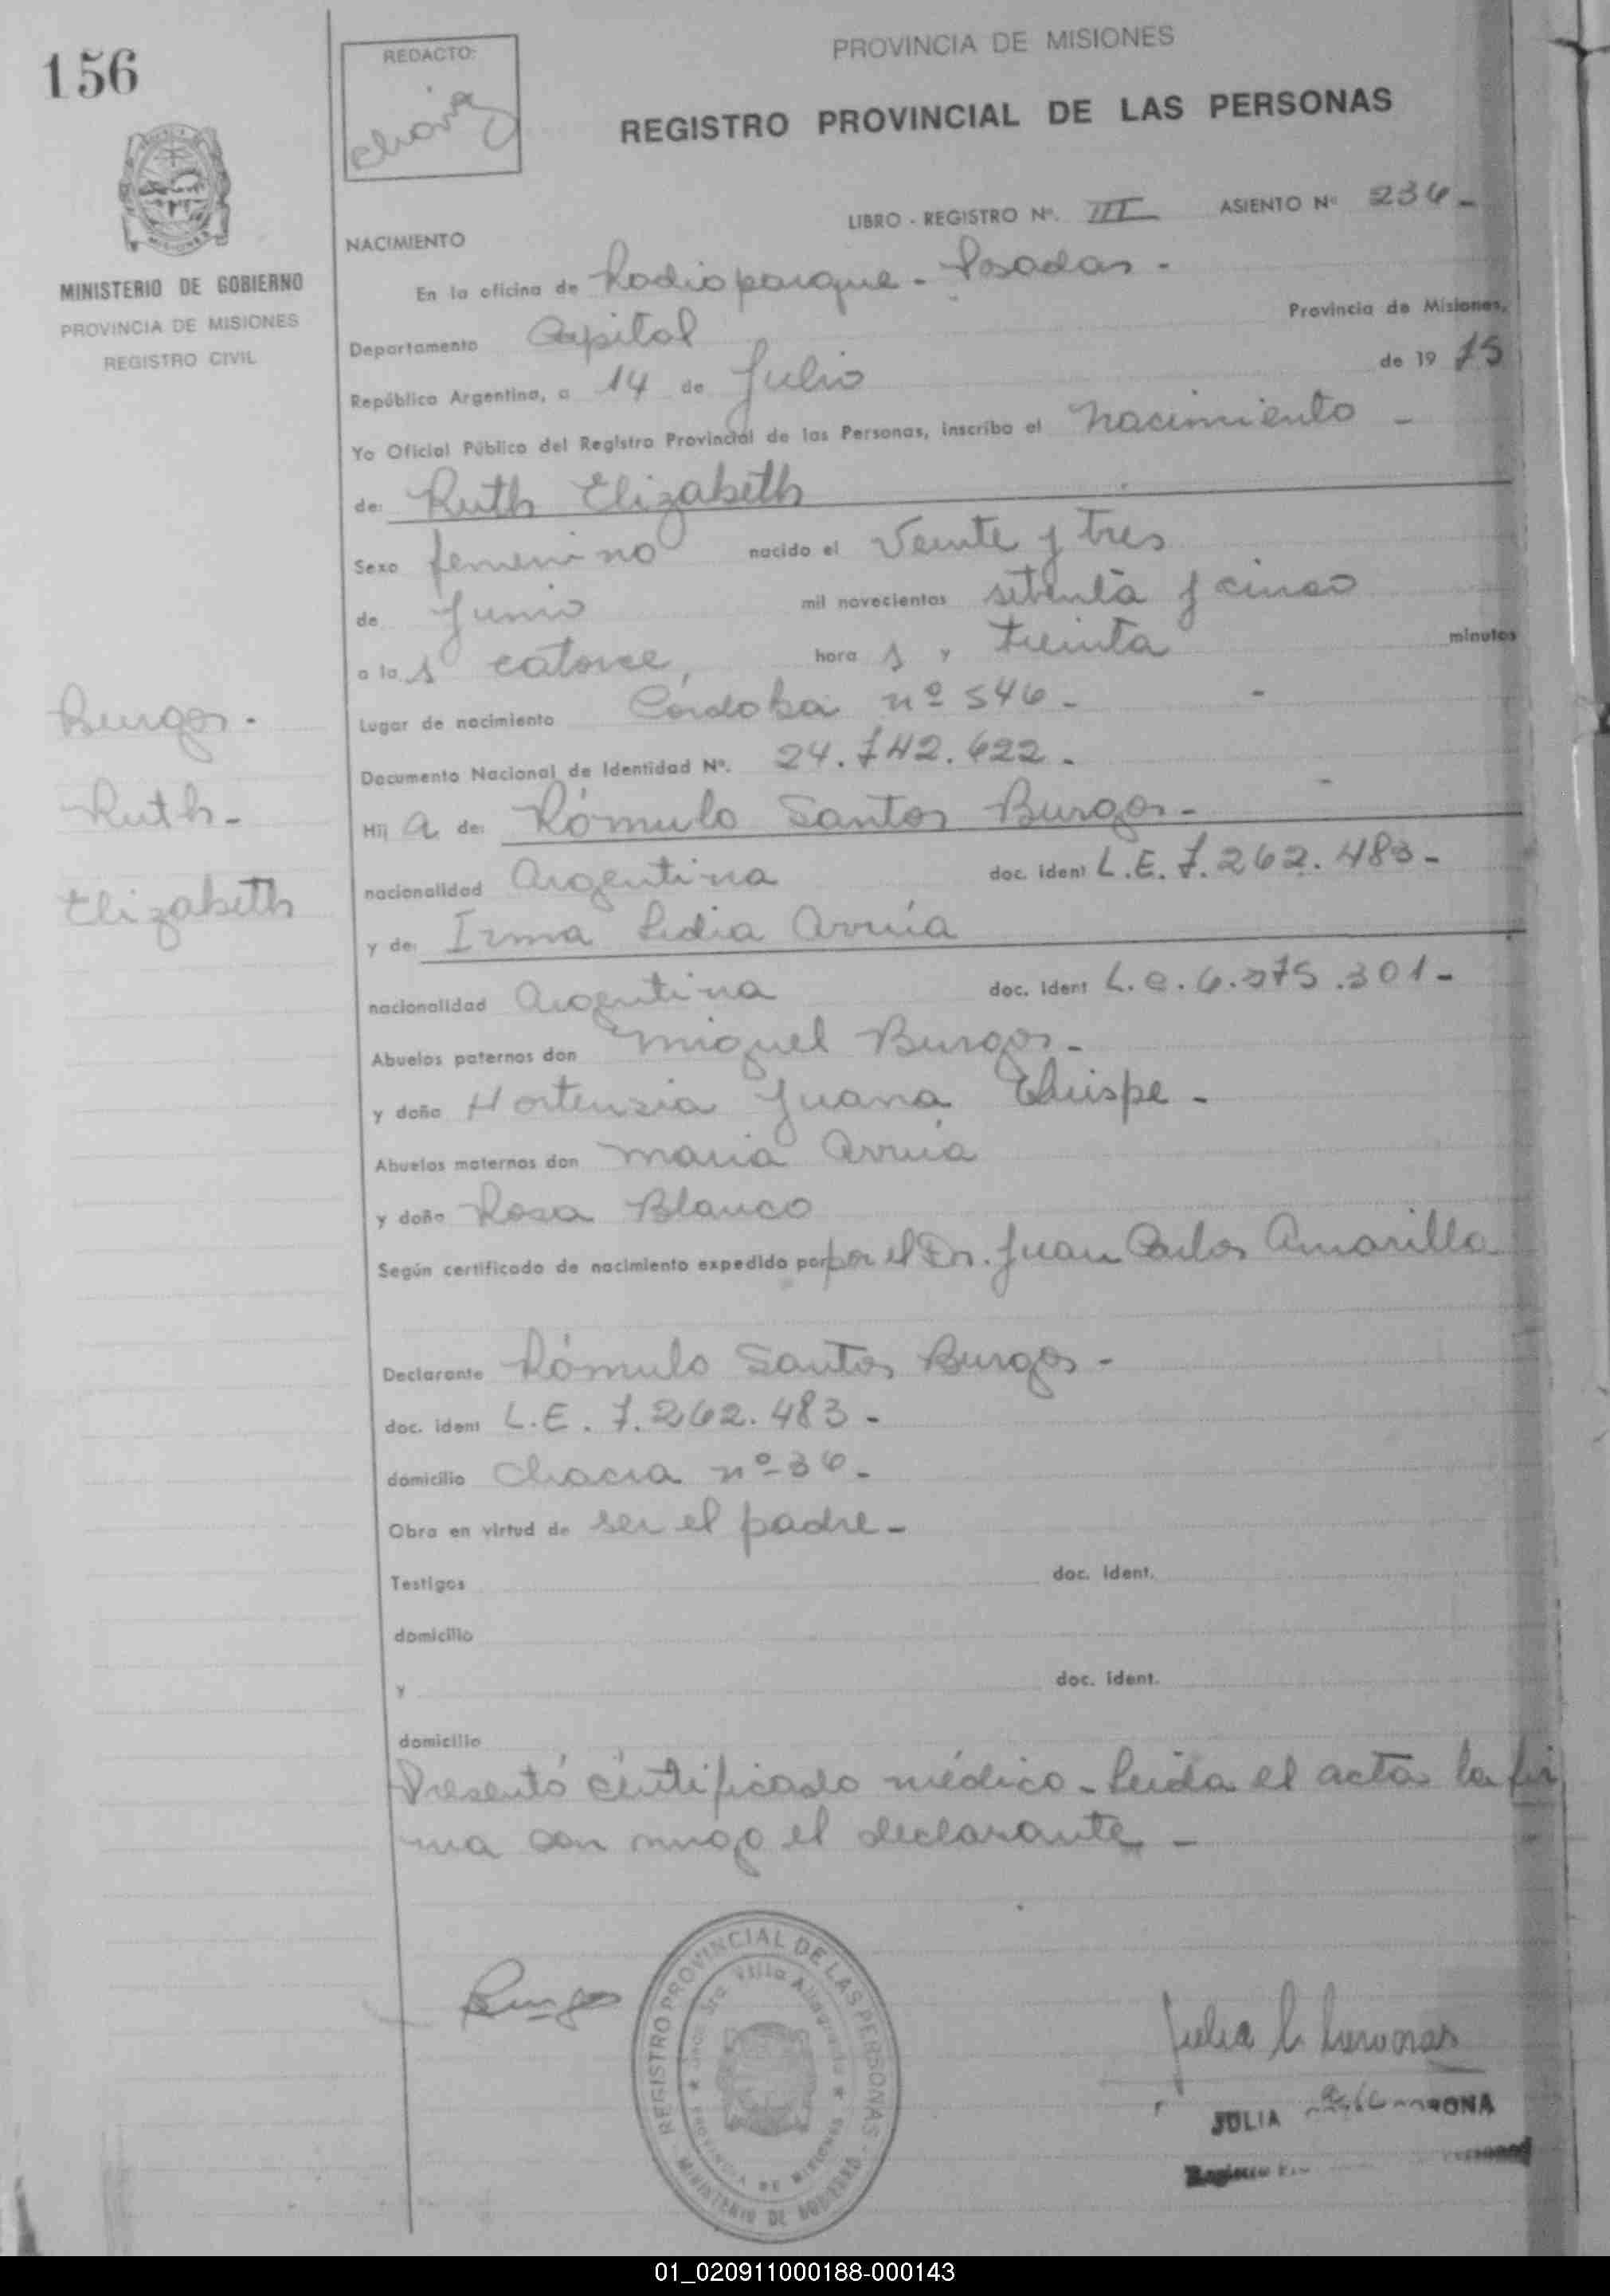 156
REDACTO:
PROVINCIA DE MISIONES
REGISTRO PROVINCIAL DE LAS PERSONAS
LIBRO - REGISTRO Nº. III ASIENTO Nº 236 -
NACIMIENTO
MINISTERIO DE GOBIERNO
PROVINCIA DE MISIONES
REGISTRO CIVIL
En la oficina de Radioparque - Posadas -
Departamento Capital Provincia de Misiones,
República Argentina, a 14 de Julio de 19 75
Yo Oficial Público del Registro Provincial de las Personas, inscribo el nacimiento -
de: Ruth Elizabeth
Sexo femenino nacido el Veinte y tres
de Junio mil novecientos setenta y cinco
a la s catorce, hora s y treinta minutos
Lugar de nacimiento Córdoba nº 546 - -
Documento Nacional de Identidad Nº. 24.742.622 -
Burgos -
Ruth -
Elizabeth
Hij a de: Rómulo Santos Burgos -
nacionalidad Argentina doc. ident L.E. 7.262.483 -
y de: Irma Lidia Arrúa
nacionalidad Argentina doc. ident L.C. 6.275.301 -
Abuelos paternos don Miguel Burgos -
y doña Hortensia Juana -
Abuelos maternos don Maria Arrúa
y doña Rosa Blanco
Según certificado de nacimiento expedido por por el Dr. Juan Carlos Amarilla
Declarante Rómulo Santos Burgos -
doc. ident L.E. 7.262.483 -
domicilio Chacra nº 36 -
Obra en virtud de ser el padre -
Testigos doc. ident.
domicilio
y doc. ident.
domicilio
Presentó certificado médico - Leida el acta la fir
ma con migo el declarante -
Burgos
REGISTRO PROVINCIAL DE LAS PERSONAS
MINISTERIO DE GOBIERNO
PROVINCIA DE MISIONES
Julia
JULIA
01_020911000188-000143